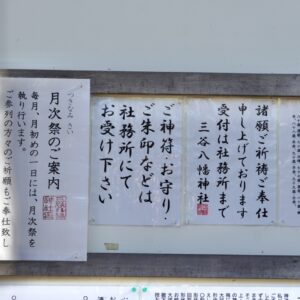 諸願ご祈祷ご奉仕
申し上げております
受付は社務所まで
三谷八幡神社
ご神符・お守り・
ご朱印などは
社務所にて
お受け下さい
つきなみさい
月次祭のご案内
毎月、月初めの一日には、月次祭を
執り行います。
ご参列の方々のご祈願もご奉仕致し